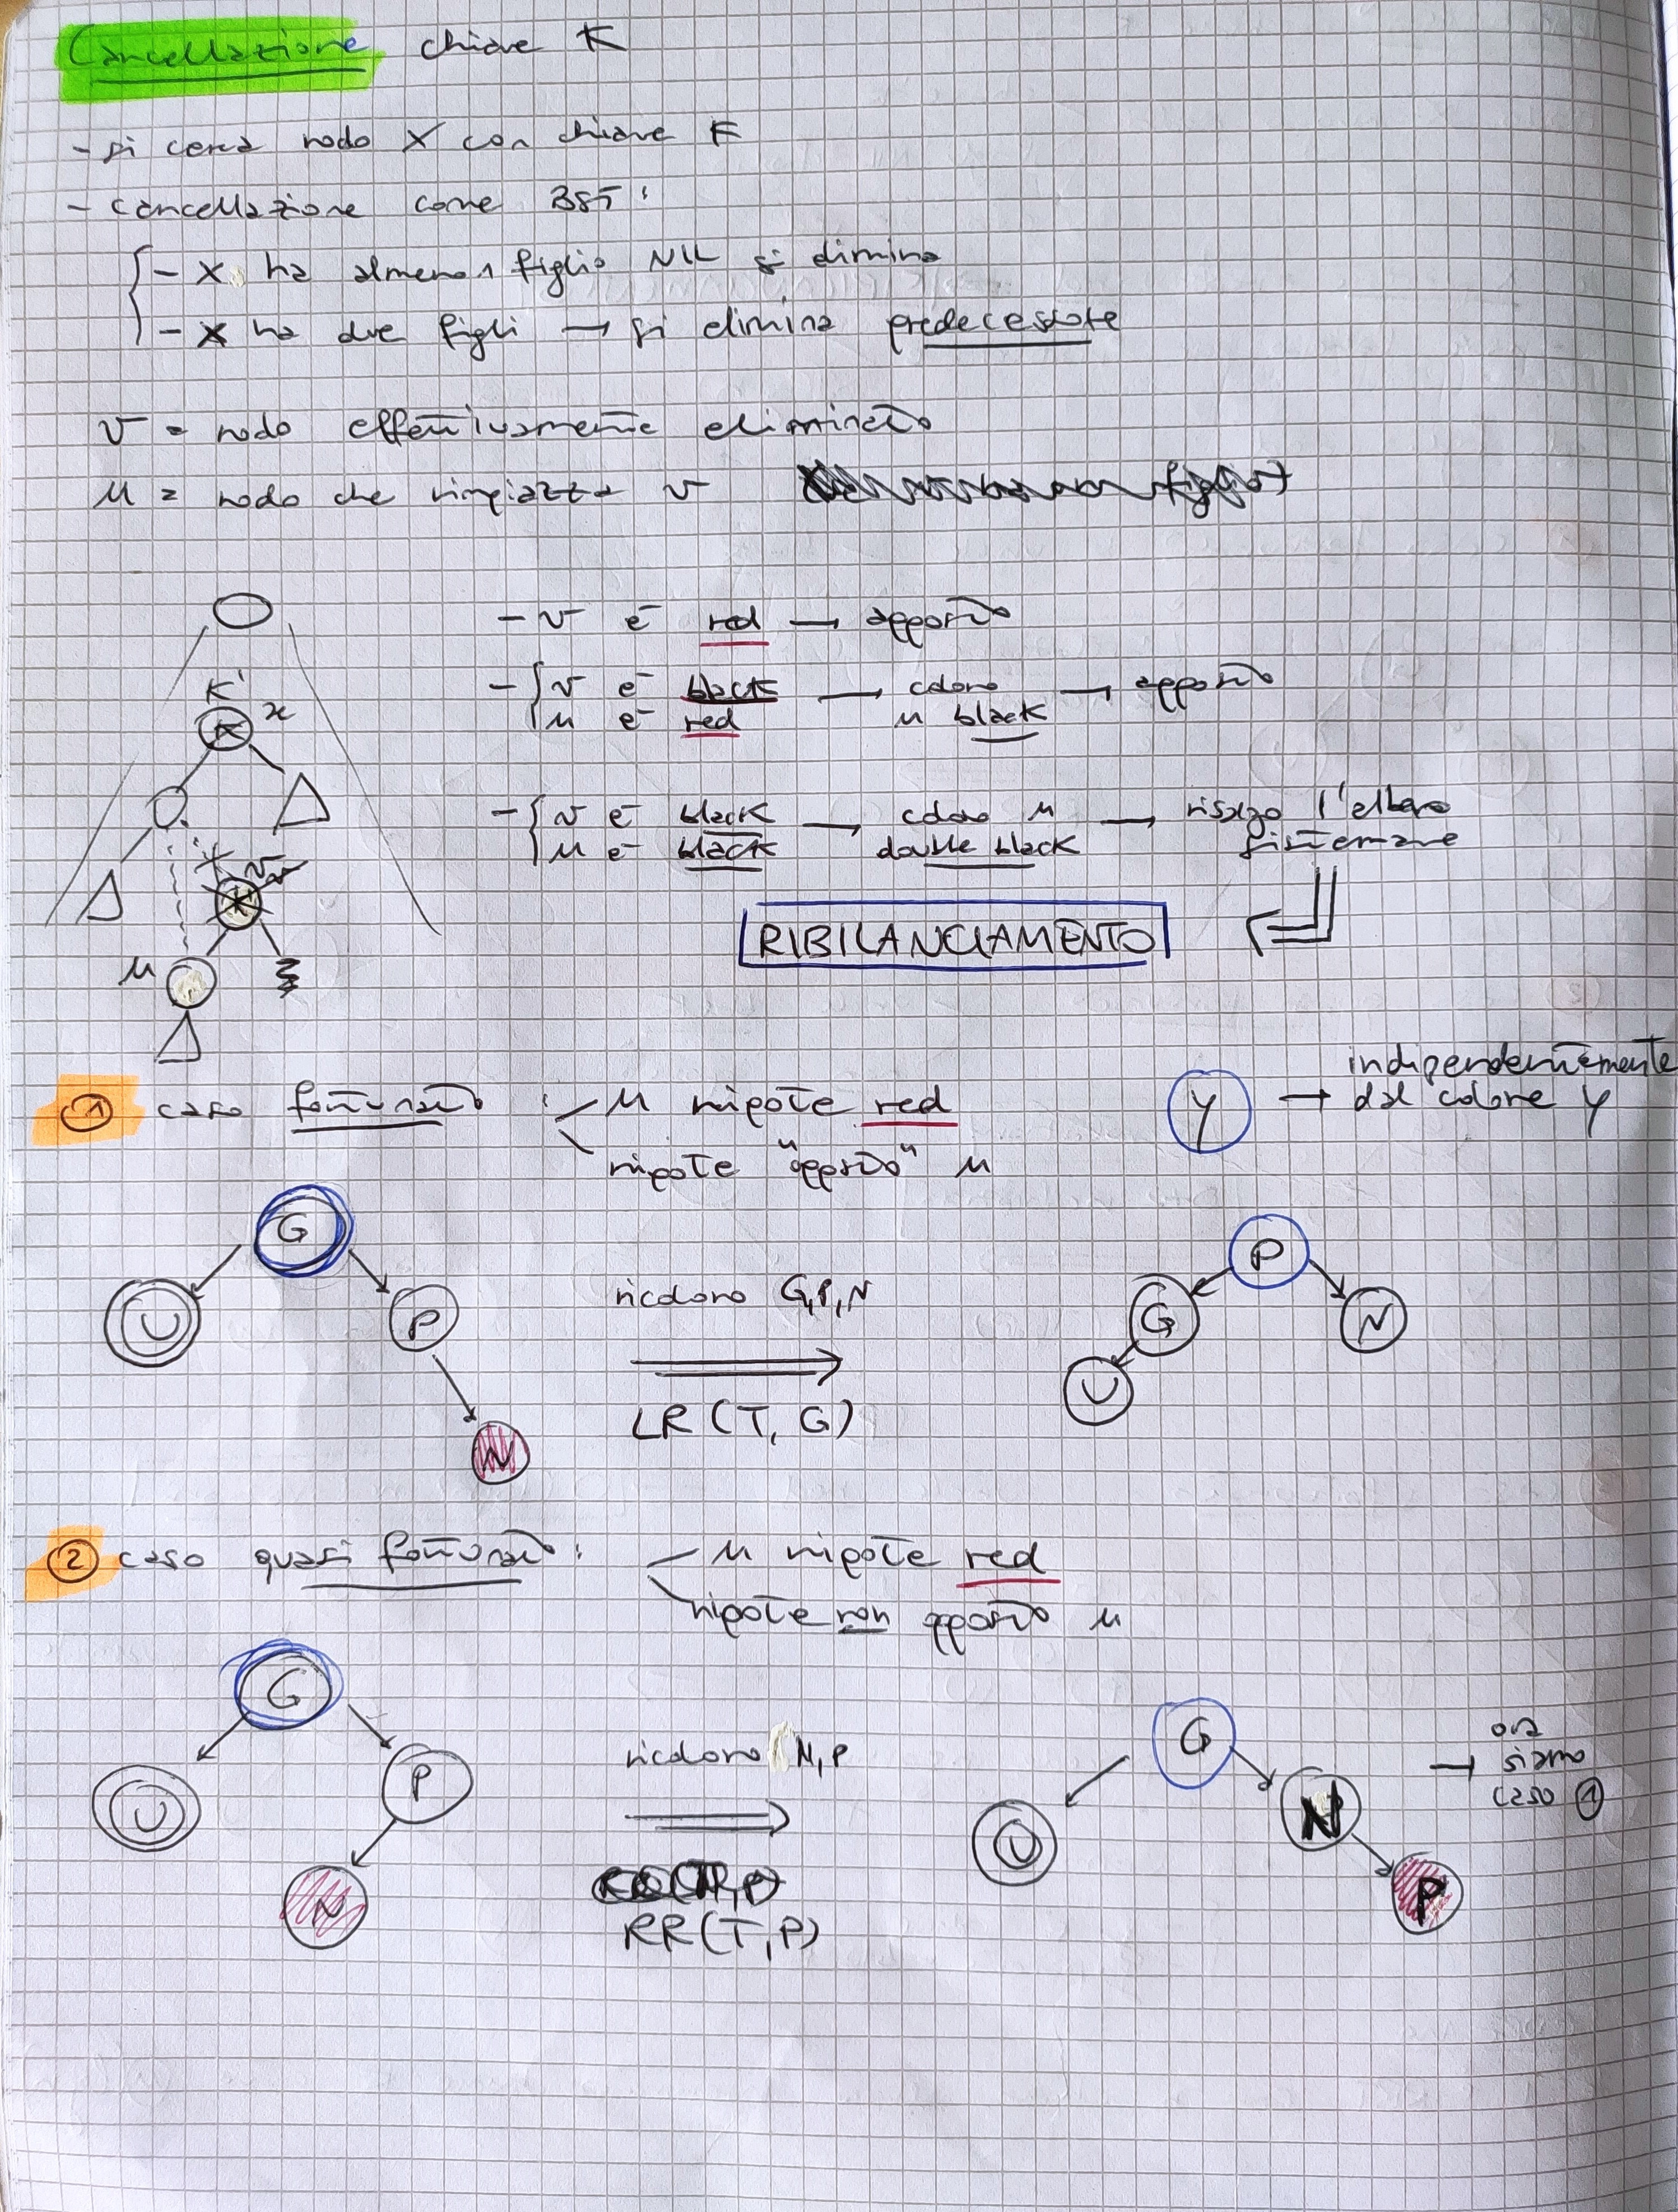 Cancellazione chiave K
- si cerca nodo X con chiave K
- cancellazione come BST:
- X ha almeno 1 figlio NIL si elimina
- X ha due figli → si elimina predecessore
v = nodo effettivamente eliminato
u = nodo che rimpiazza v
- v è red → apposto
- v è black → coloro → apposto
u è red u black
- v è black → coloro u → risalgo l'albero
u è black double black sistemare
K'
K x
v
u
RIBILANCIAMENTO
① caso fortunato : u nipote red
nipote "opposto" u
Y → indipendentemente
dal colore Y
G
U P
N
ricoloro G,P,N
LR (T, G)
P
G N
U
② caso quasi fortunato : u nipote red
nipote non opposto u
G
U P
N
ricoloro N,P
RR(T,P)
G
U N
P
→ ora
siamo
caso ①